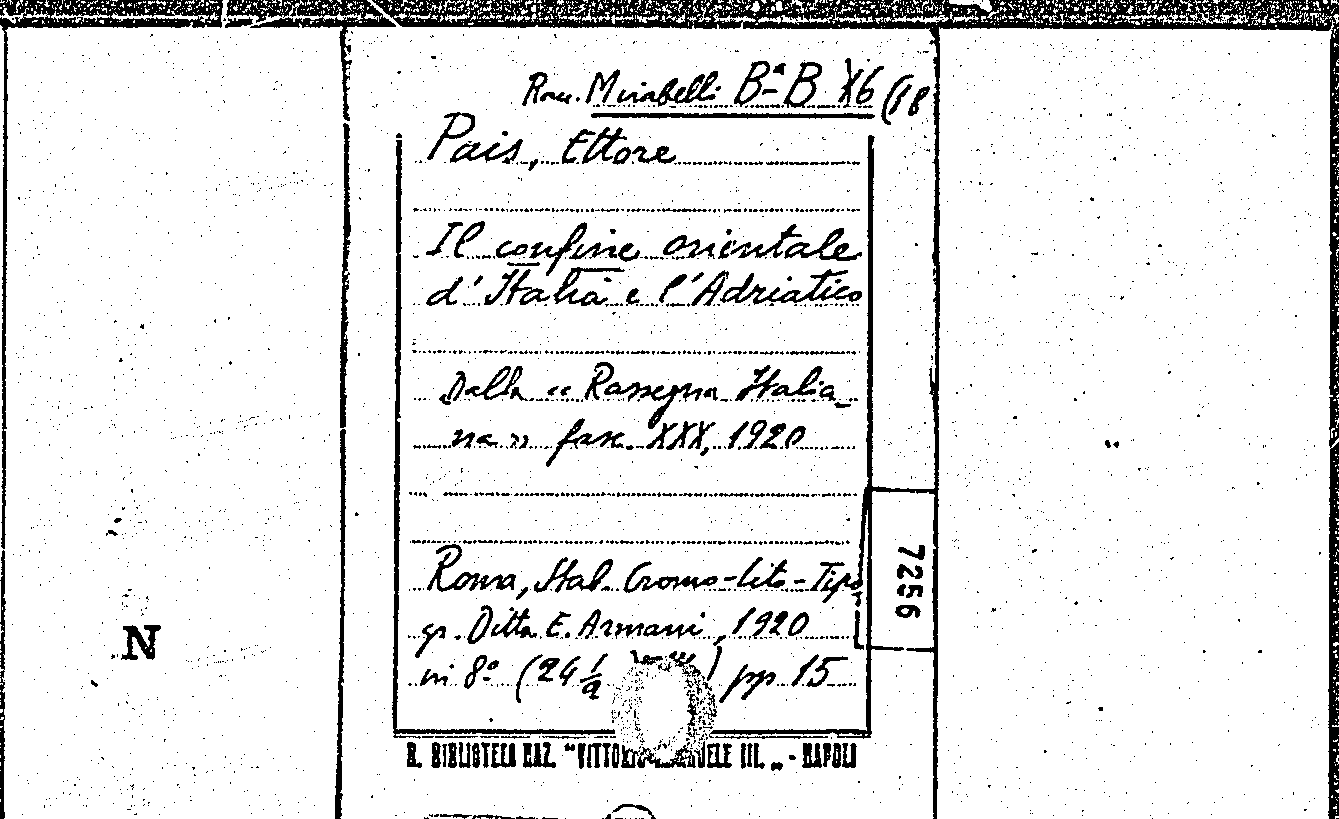 Rac. Mirabelli Bª B X6 (18
Pais, Ettore
Il confine orientale
d'Italia e l'Adriatico
Dalla « Rassegna Italia_
na » fasc. XXX, 1920
Roma, Stab. Cromo-Lito-Tipo
gr. Ditta E. Armani, 1920
in 8º (24 ½ ) pp 15
R. BIBLIOTECA NAZ. "VITTORIO EMANUELE III. „ - NAPOLI
7256
N